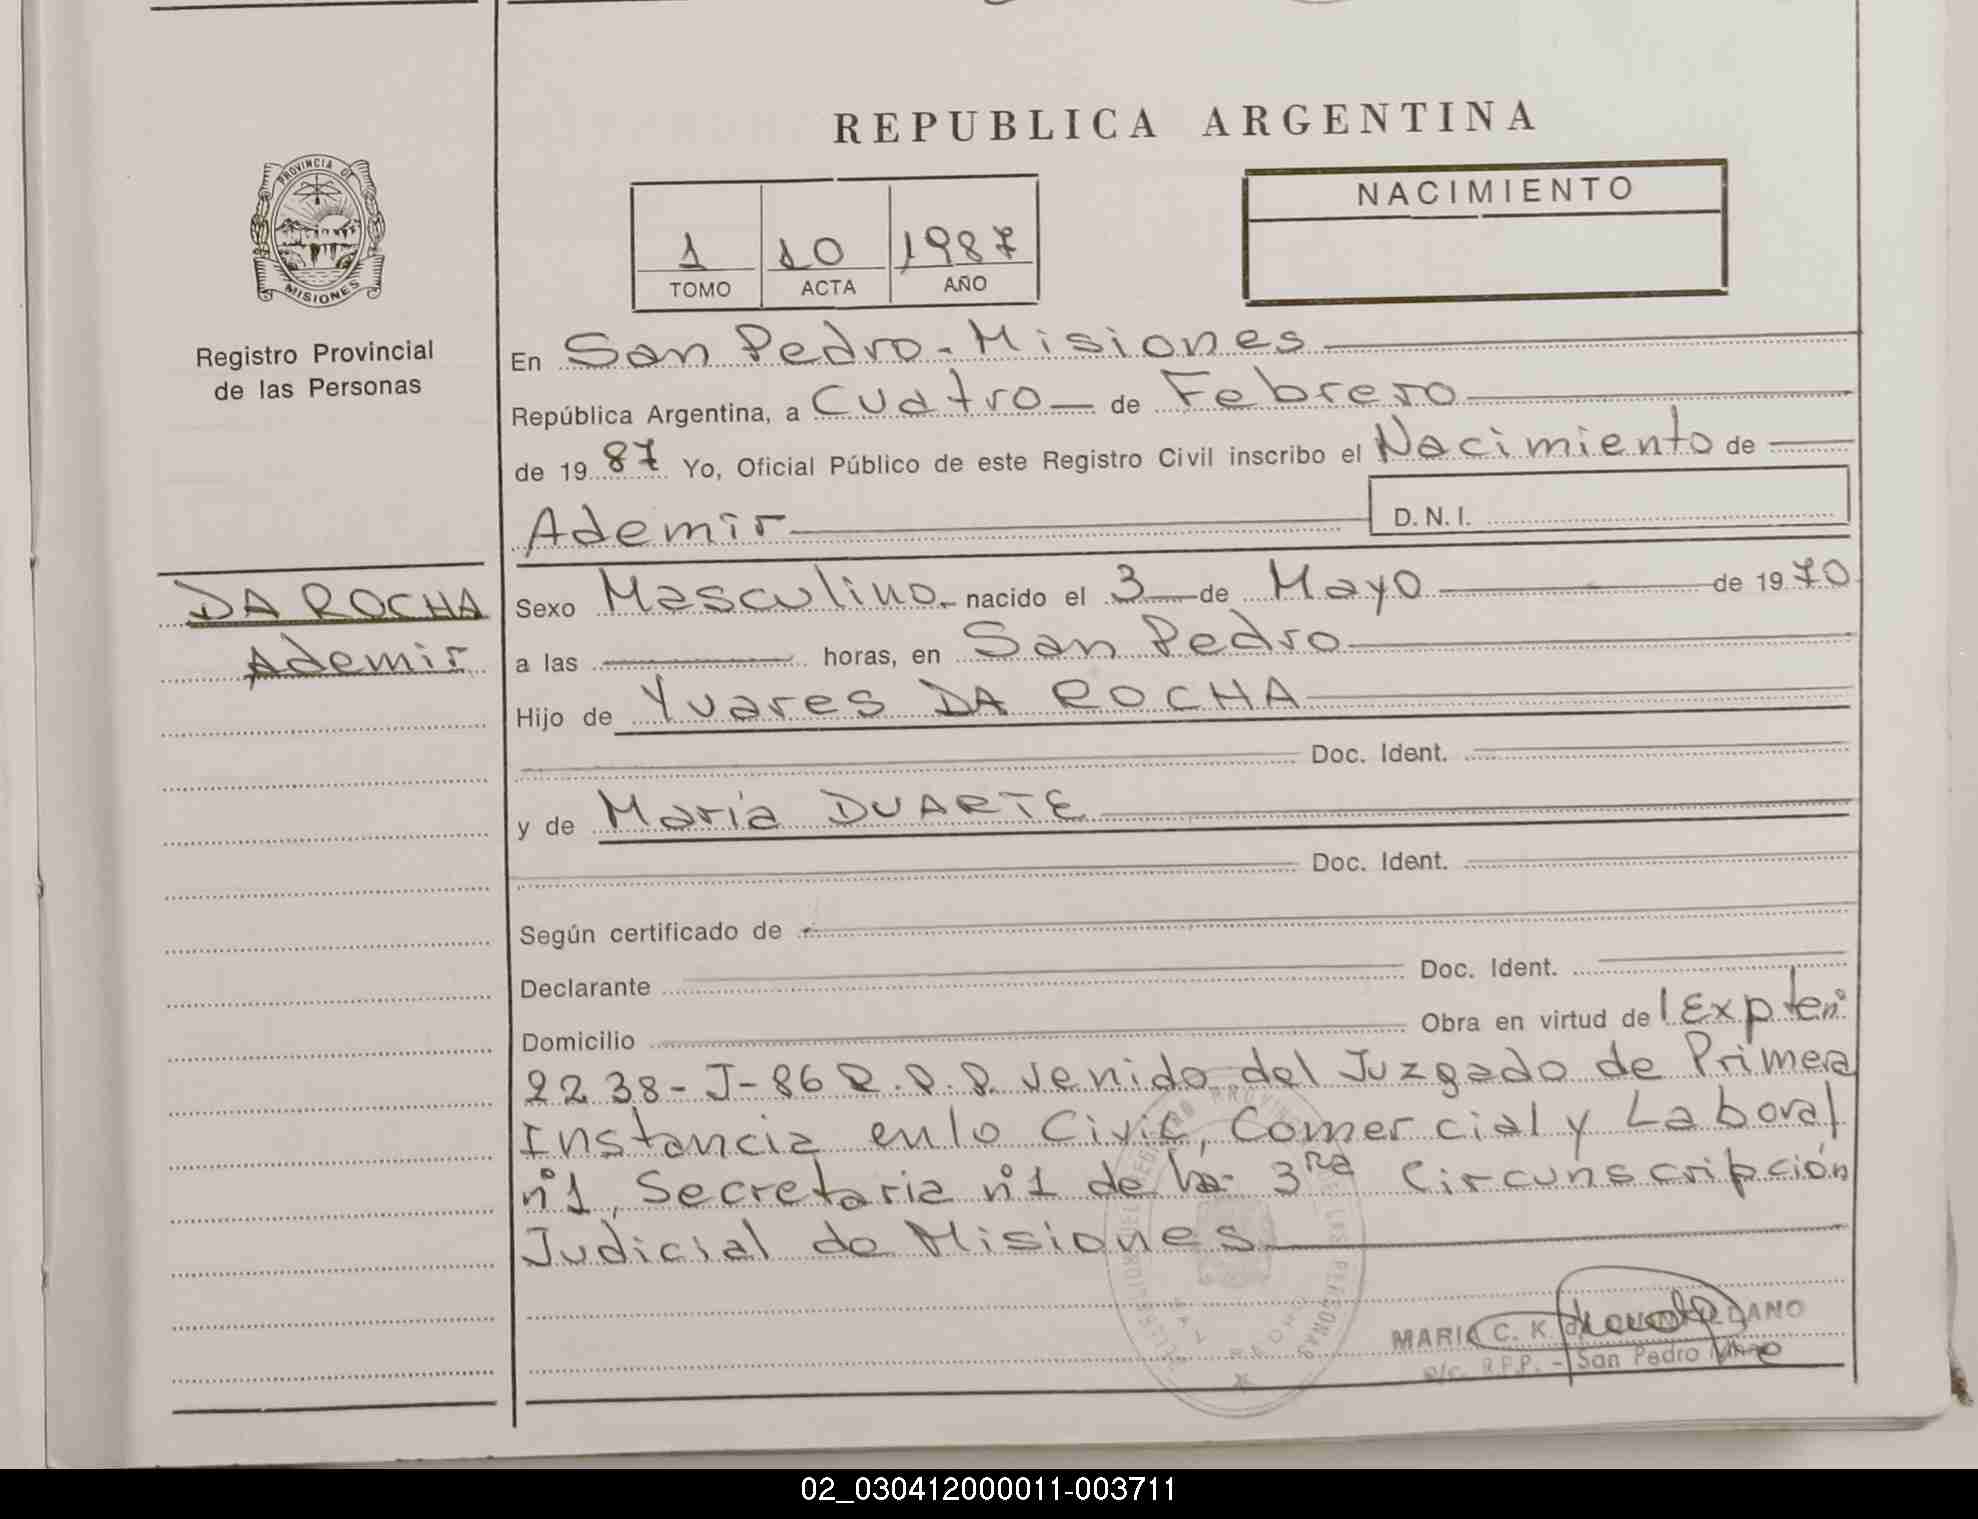 REPUBLICA ARGENTINA
PROVINCIA DE
MISIONES
Registro Provincial
de las Personas
1 10 1987
TOMO ACTA AÑO
NACIMIENTO
En San Pedro - Misiones
República Argentina, a Cuatro de Febrero
de 19 87 Yo, Oficial Público de este Registro Civil inscribo el Nacimiento de
Ademir D.N.I.
DA ROCHA
Ademir
Sexo Masculino nacido el 3 de Mayo de 19 70
a las horas, en San Pedro
Hijo de Yvares DA ROCHA
Doc. Ident.
y de María DUARTE
Doc. Ident.
Según certificado de
Declarante Doc. Ident.
Domicilio Obra en virtud del Expte nº
2238-J-86 R.P.P. venido del Juzgado de Primera
Instancia en lo Civil, Comercial y Laboral
nº1, Secretaria nº1 de la 3ra Circunscripción
Judicial de Misiones
MARIA C. K.
R.P.P. - San Pedro
02_030412000011-003711